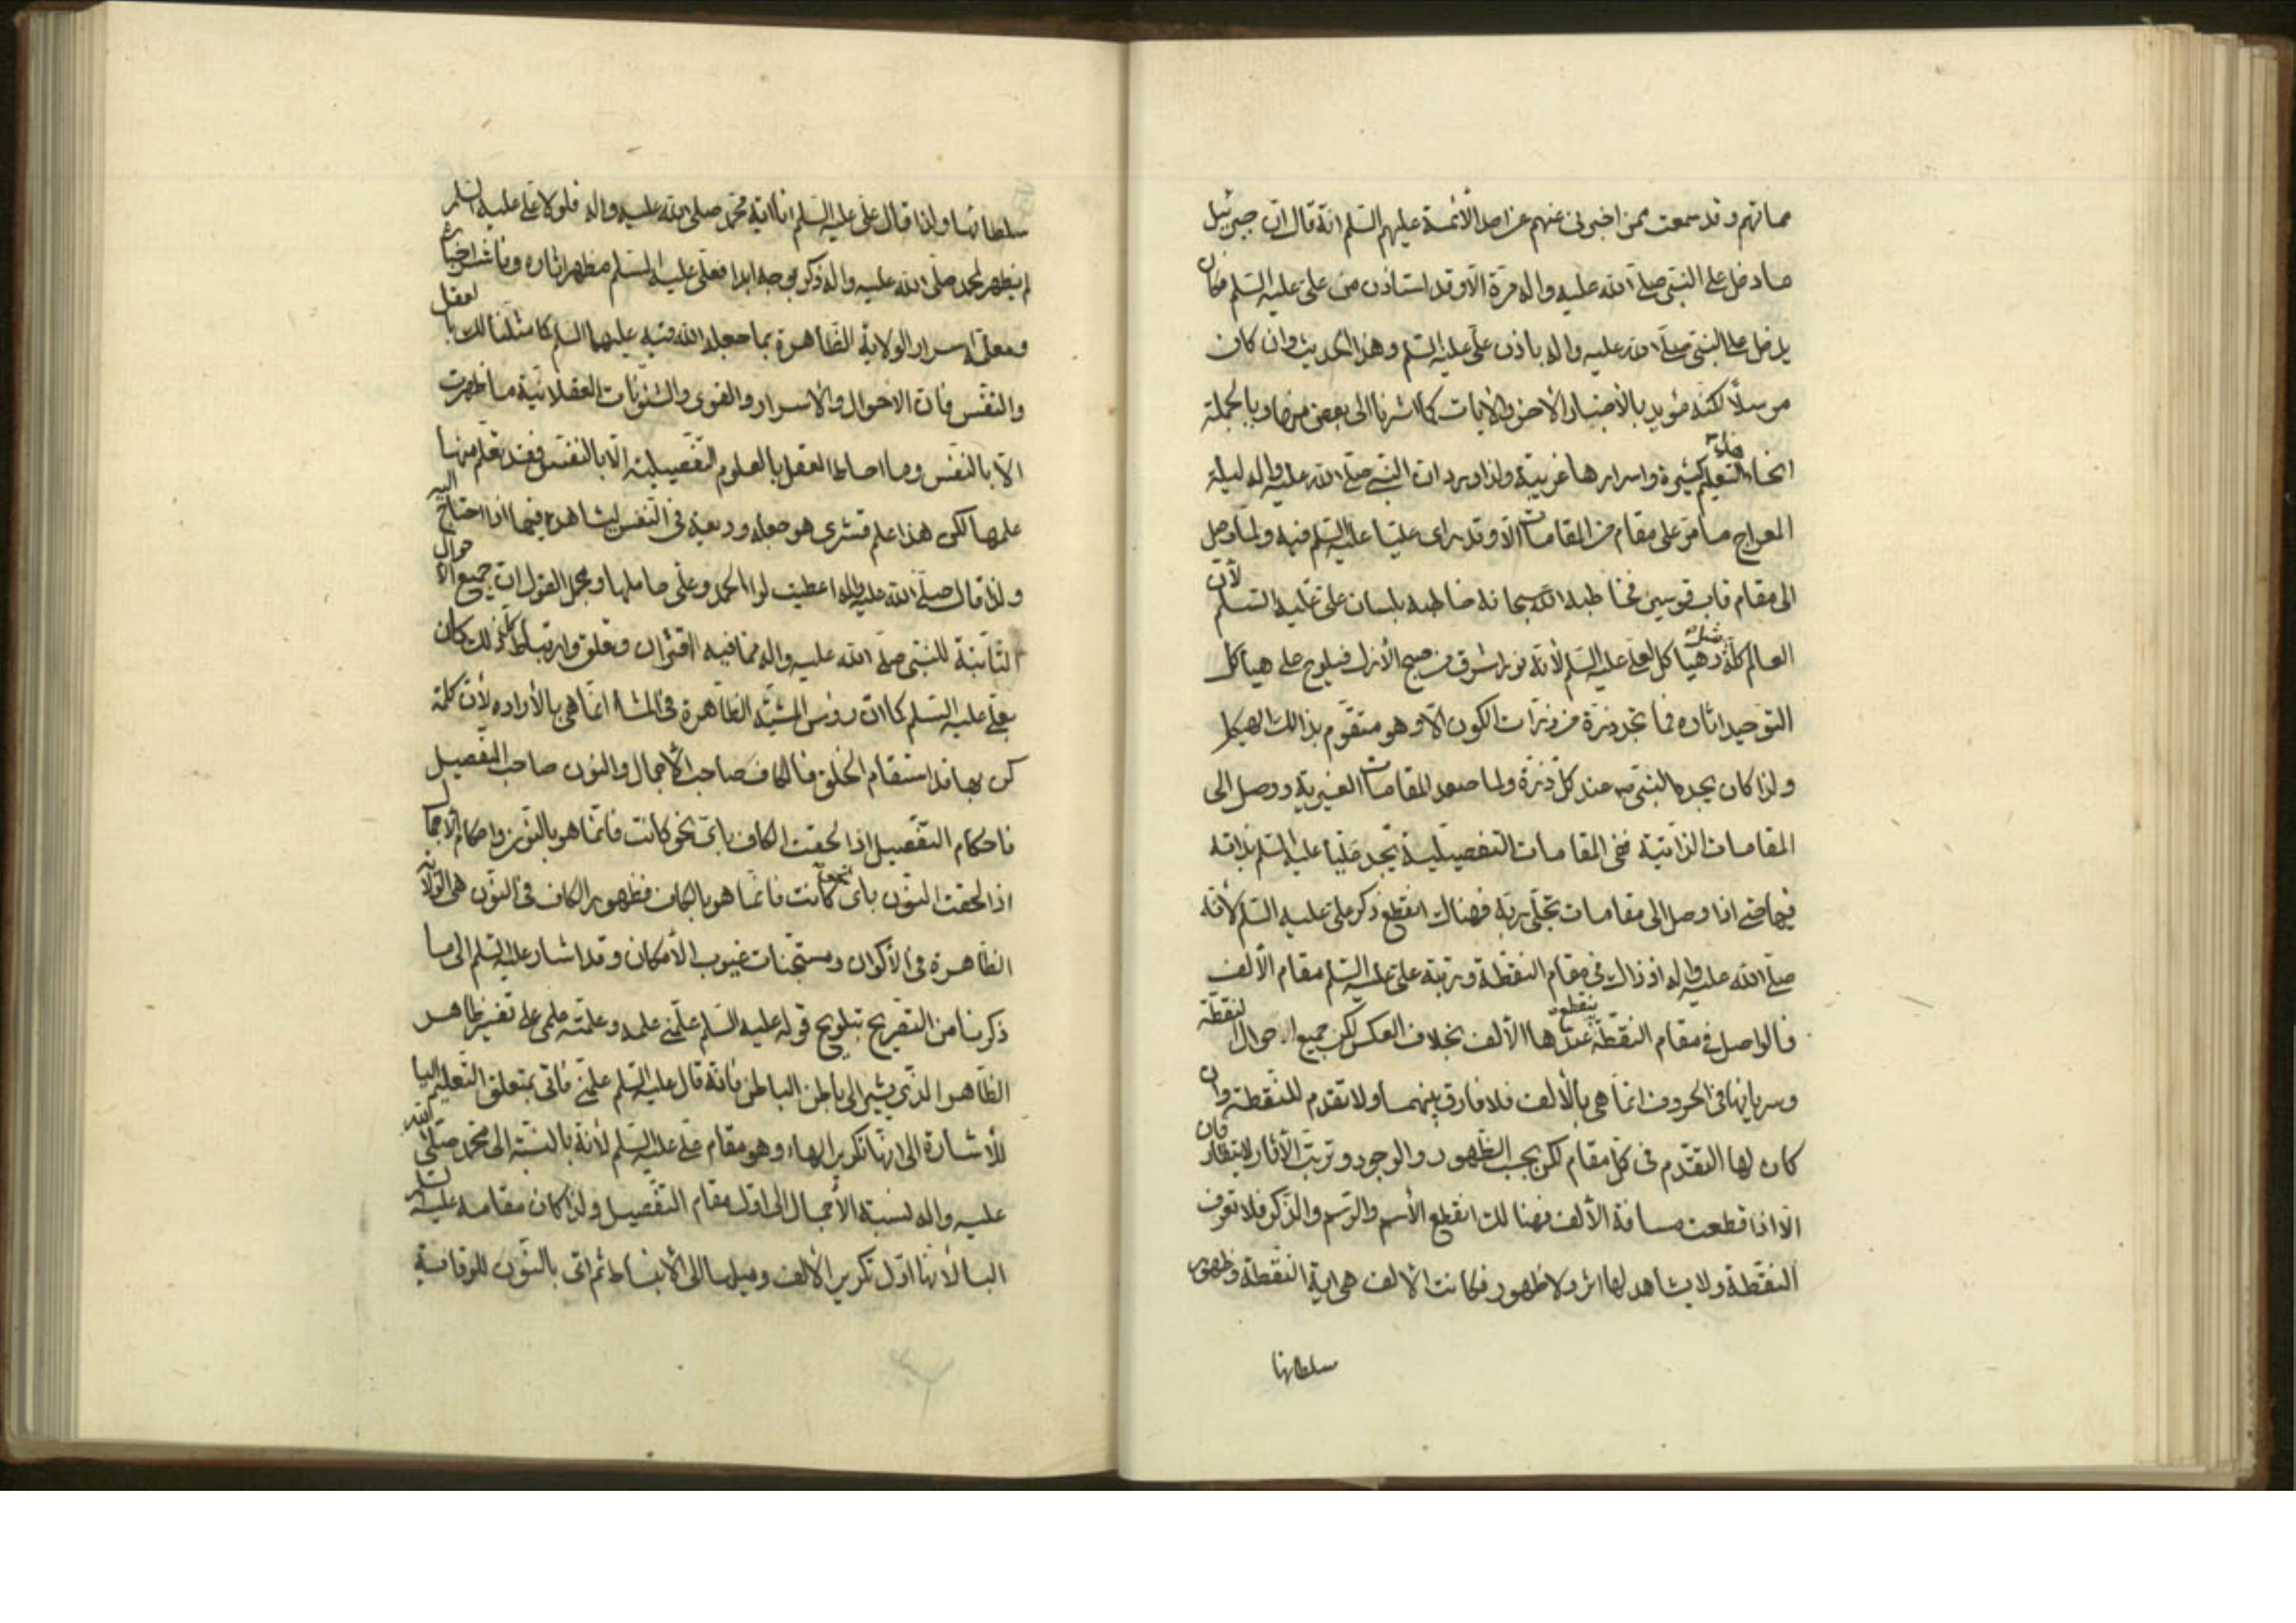 مماتهم وقد سمعت ممن اخبرنی عنهم عن احد الأئمة علیهم السّلم انّه قال انّ جبرئیل
ما دخل علی النبّی صلّی الله علیه واله مرّة الّا وقد استاذن من علی علیه السّلم فکان
یدخل علی النبّی صلّی الله علیه واله باذن علّی علیه السّلم وهذا الحدیث وان کان
مرسلاً لکنّه مؤید بالأخبار الأخر والایات کما اشرنا الی بعض منها وبالجملة
انحاء التعلیم کثیرة واسرارها غریبة ولذا ورد ان النبّی صلّی الله علیه واله لیلة
المعراج ما مرّ علی مقام من المقامات الّا وقد رای علیّا علیه السّلم فیه ولمّا وصل
الی مقام قاب قوسین فخاطبه الله سبحانه خاطبه بلسان علّی علیه السّلم لأنّ
العالم کلّه هیاکل لعلّی علیه السّلم لأنّه نور اشرق من صبح الأزل فیلوح علی هیاکل
التّوحید اثاره فما تجد ذرّة من ذرّات الکون الّا وهو متقوّم بذالك الهیکل
ولذا کان یجده النبّی ص عند کلّ ذرّة ولما صعد المقامات الغیریة ووصل الی
المقامات الذّاتیّة ففی المقامات التّفصیلیة یجد علیّاً علیه السّلم بذاته
فیها حتی اذا وصل الی مقامات تجلّی ربّه فهناك انقطع ذکر علی علیه السّلم لأنّه
صلّی الله علیه واله اذ ذاك فی مقام النقطة ورتبة علی علیه السّلم مقام الألف
فالواصل فی مقام النقطة ینقطع عندها الألف بخلاف العکس لکن جمیع احوال النقطة
وسریانها فی الحروف انمّا هی بالألف فلا فارق بینهما ولا تقدم للنقطة وان
کان لها التقدّم فی کلّ مقام لکن بحسب الظّهور والوجود وترتّب الأثار لا ینظار فان
الّا اذا قطعت مسافة الألف فهنالك انقطع الأسم والرّسم والذّکر فلا تعرف
النقطة ولا یشاهد لها اثر ولا ظهور فکانت الألف هی ایة النقطة وظهور
سلطانها
سلطانها ولذا قال علّی علیه السّلم انا ایة محمّد صلی الله علیه واله فلولا علّی علیه السّلم
لم یظهر لمحمد صلّی الله علیه واله ذکر بوجه ابدا فعلّی علیه السّلم مظهر اثاره وناشر اخباره
ومعلّم اسرار الولایة الظّاهرة بما جعله الله فیه علیهما السّلم کما مثّلنا لك بالعقل
والنّفس فان الاحوال والأسرار والقوی والشئونات العقلانیّة ما ظهرت
الّا بالنّفس وما احاط العقل بالعلوم التّفصیلیة الّا بالنّفس فقد تعلّم منها
علمها لکن هذا علم قشری هو جعله ودیعة فی النّفس لیشاهده فیها اذا احتاج الیه
ولذا قال صلّی الله علیه واله اعطیت لواء الحمد وعلّی حاملها ومجمل القول انّ جمیع الأحوال
الثّابتة للنبّی صلّی الله علیه واله مما فیه اقتران وتعلق وارتباط کلّ ذلك کان
بعلّی علیه السّلم کما انّ رؤس المشیّة الظّاهرة فی المشاء انمّا هی بالأراده لأن کلمة
کن بها قد استقام الخلق فالکاف صاحب الأجمال والنون صاحب التفصیل
فاحکام التّفصیل اذا لحقت الکاف بایّ نحو کانت فانمّا هو بالنّون واحکام الأجمال
اذا لحقت النّون بایّ نحو کانت فانمّا هو بالکاف فظهور الکاف فی النّون هی الولایة
الظّاهرة فی الأکوان ومستجنات غیوب الأمکان وقد اشار علیه السّلم الی ما
ذکرنا من التّفریح بتلویح قوله علیه السّلم علمّنی علمه وعلمّته علمی علی تفسیر ظاهر
الظّاهر الذّی یشیر الی باطن الباطن فانّه قال علیه السّلم علمّنی فاتی بمتعلق التّعلیم الیاء
للأشارة الی انهّا تکریر الهاء وهو مقام علّی علیه السّلم لأنّه بالنّسبة الی محمّد صلّی الله
علیه واله نسبة الأجمال الی اوّل مقام التّفصیل ولذا کان مقامه علیه السّلم
الباء لأنهّا اوّل تکریر الألف ومیلها الی الأنبساط ثم اتی بالنّون للوقایة